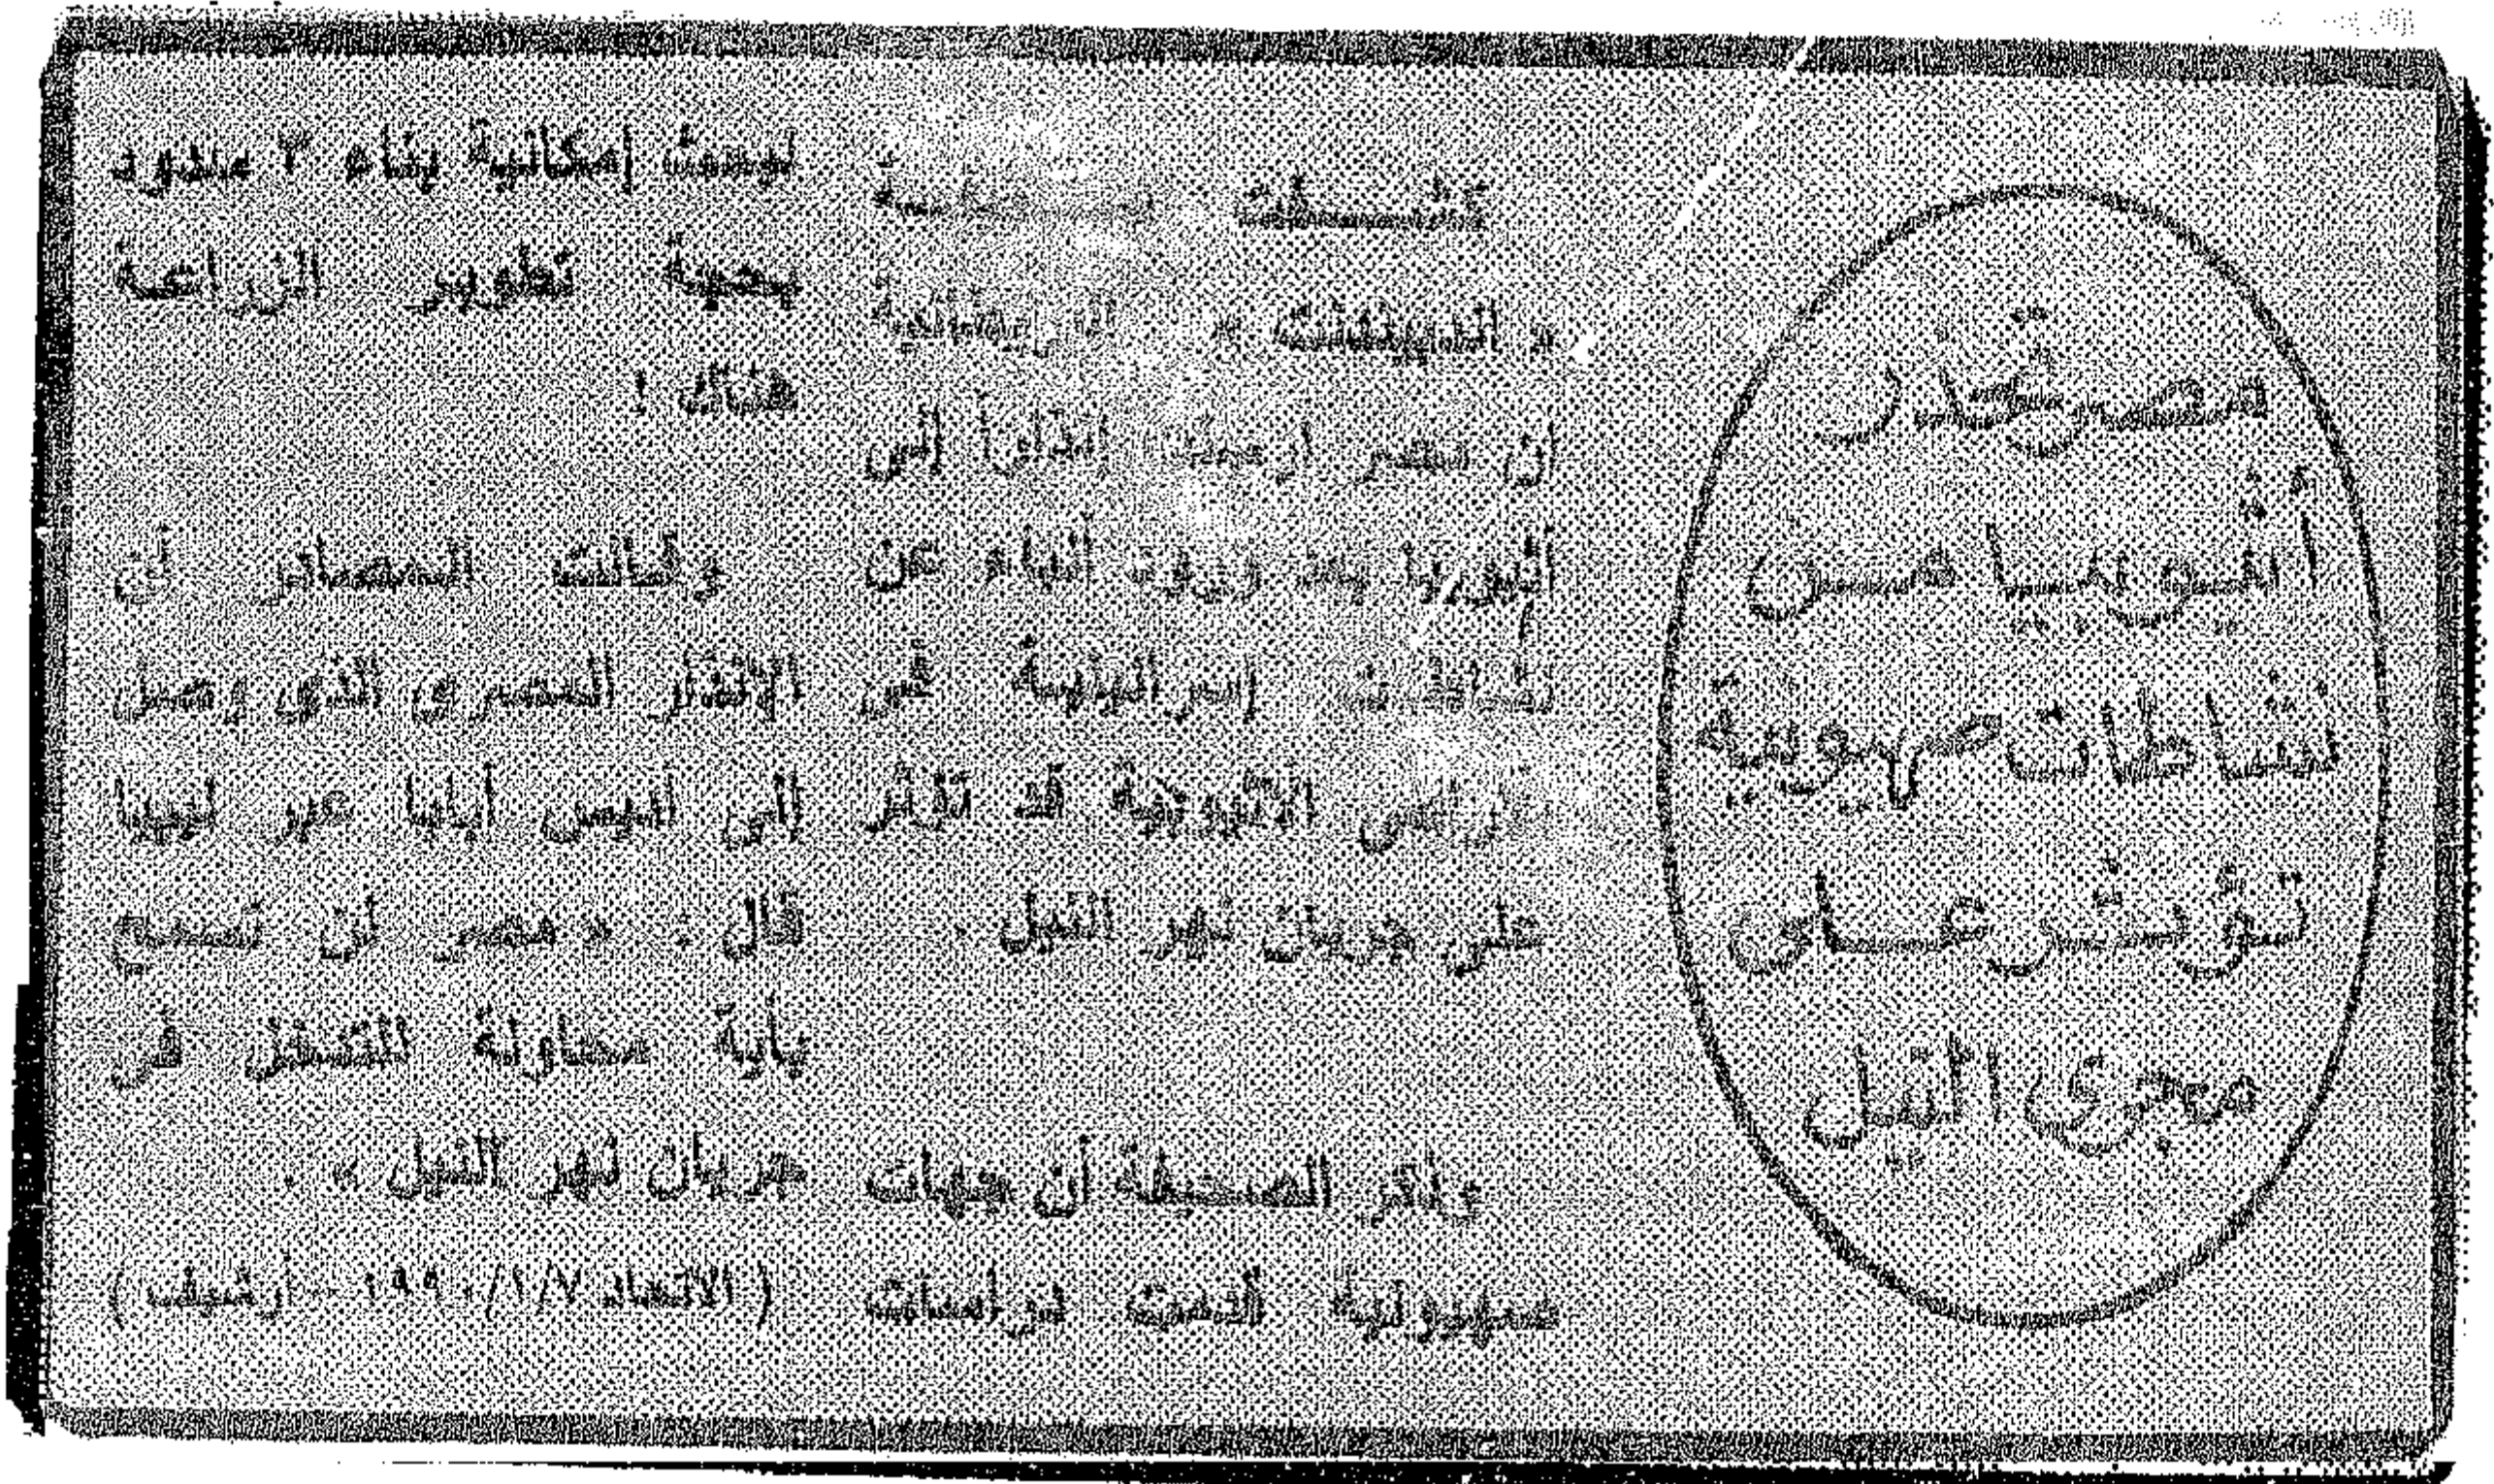 مصر تحذر
أثيوبيا من
نشاطات صهيونية
تؤثر على
مجرى النيل
كشفت صحيفة
« الديينتش » البريطانية
ان مصر ارسلت انذاراً إلى
أثيوبيا بعد ورود أنباء عن
نشاطات إسرائيلية في
الأراضي الأثيوبية قد تؤثر
على جريان نهر النيل .
وتذكر الصحيفة أن جهات
صهيونية أتمت دراسات
لبحث إمكانية بناء ٣ سدود
بحجة تطوير الزراعة
هناك !
وكانت المصادر أن
الإنذار المصري الذي وصل
إلى أديس أبابا عبر ليبيا
قال : « مصر لن تسمح
بأية محاولة للتدخل في
جريان نهر النيل » .
( الاتحاد ١٩٩٠/١/٧ - أرشيف )